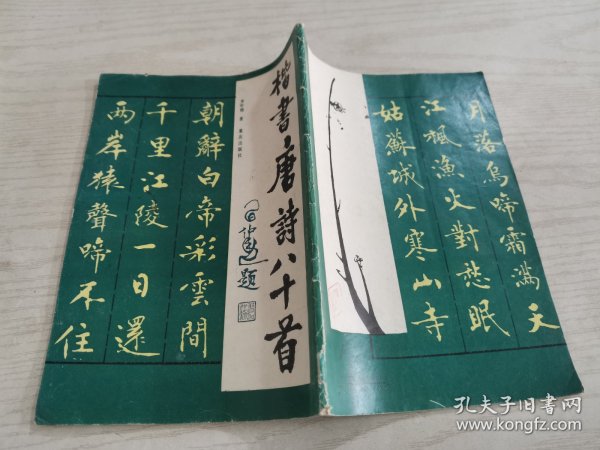 月落烏啼霜滿天
江楓漁火對愁眠
姑蘇城外寒山寺
楷書唐詩八十首
題
朝辭白帝彩雲間
千里江陵一日還
兩岸猿聲啼不住
孔夫子旧书网
www.kongfz.com